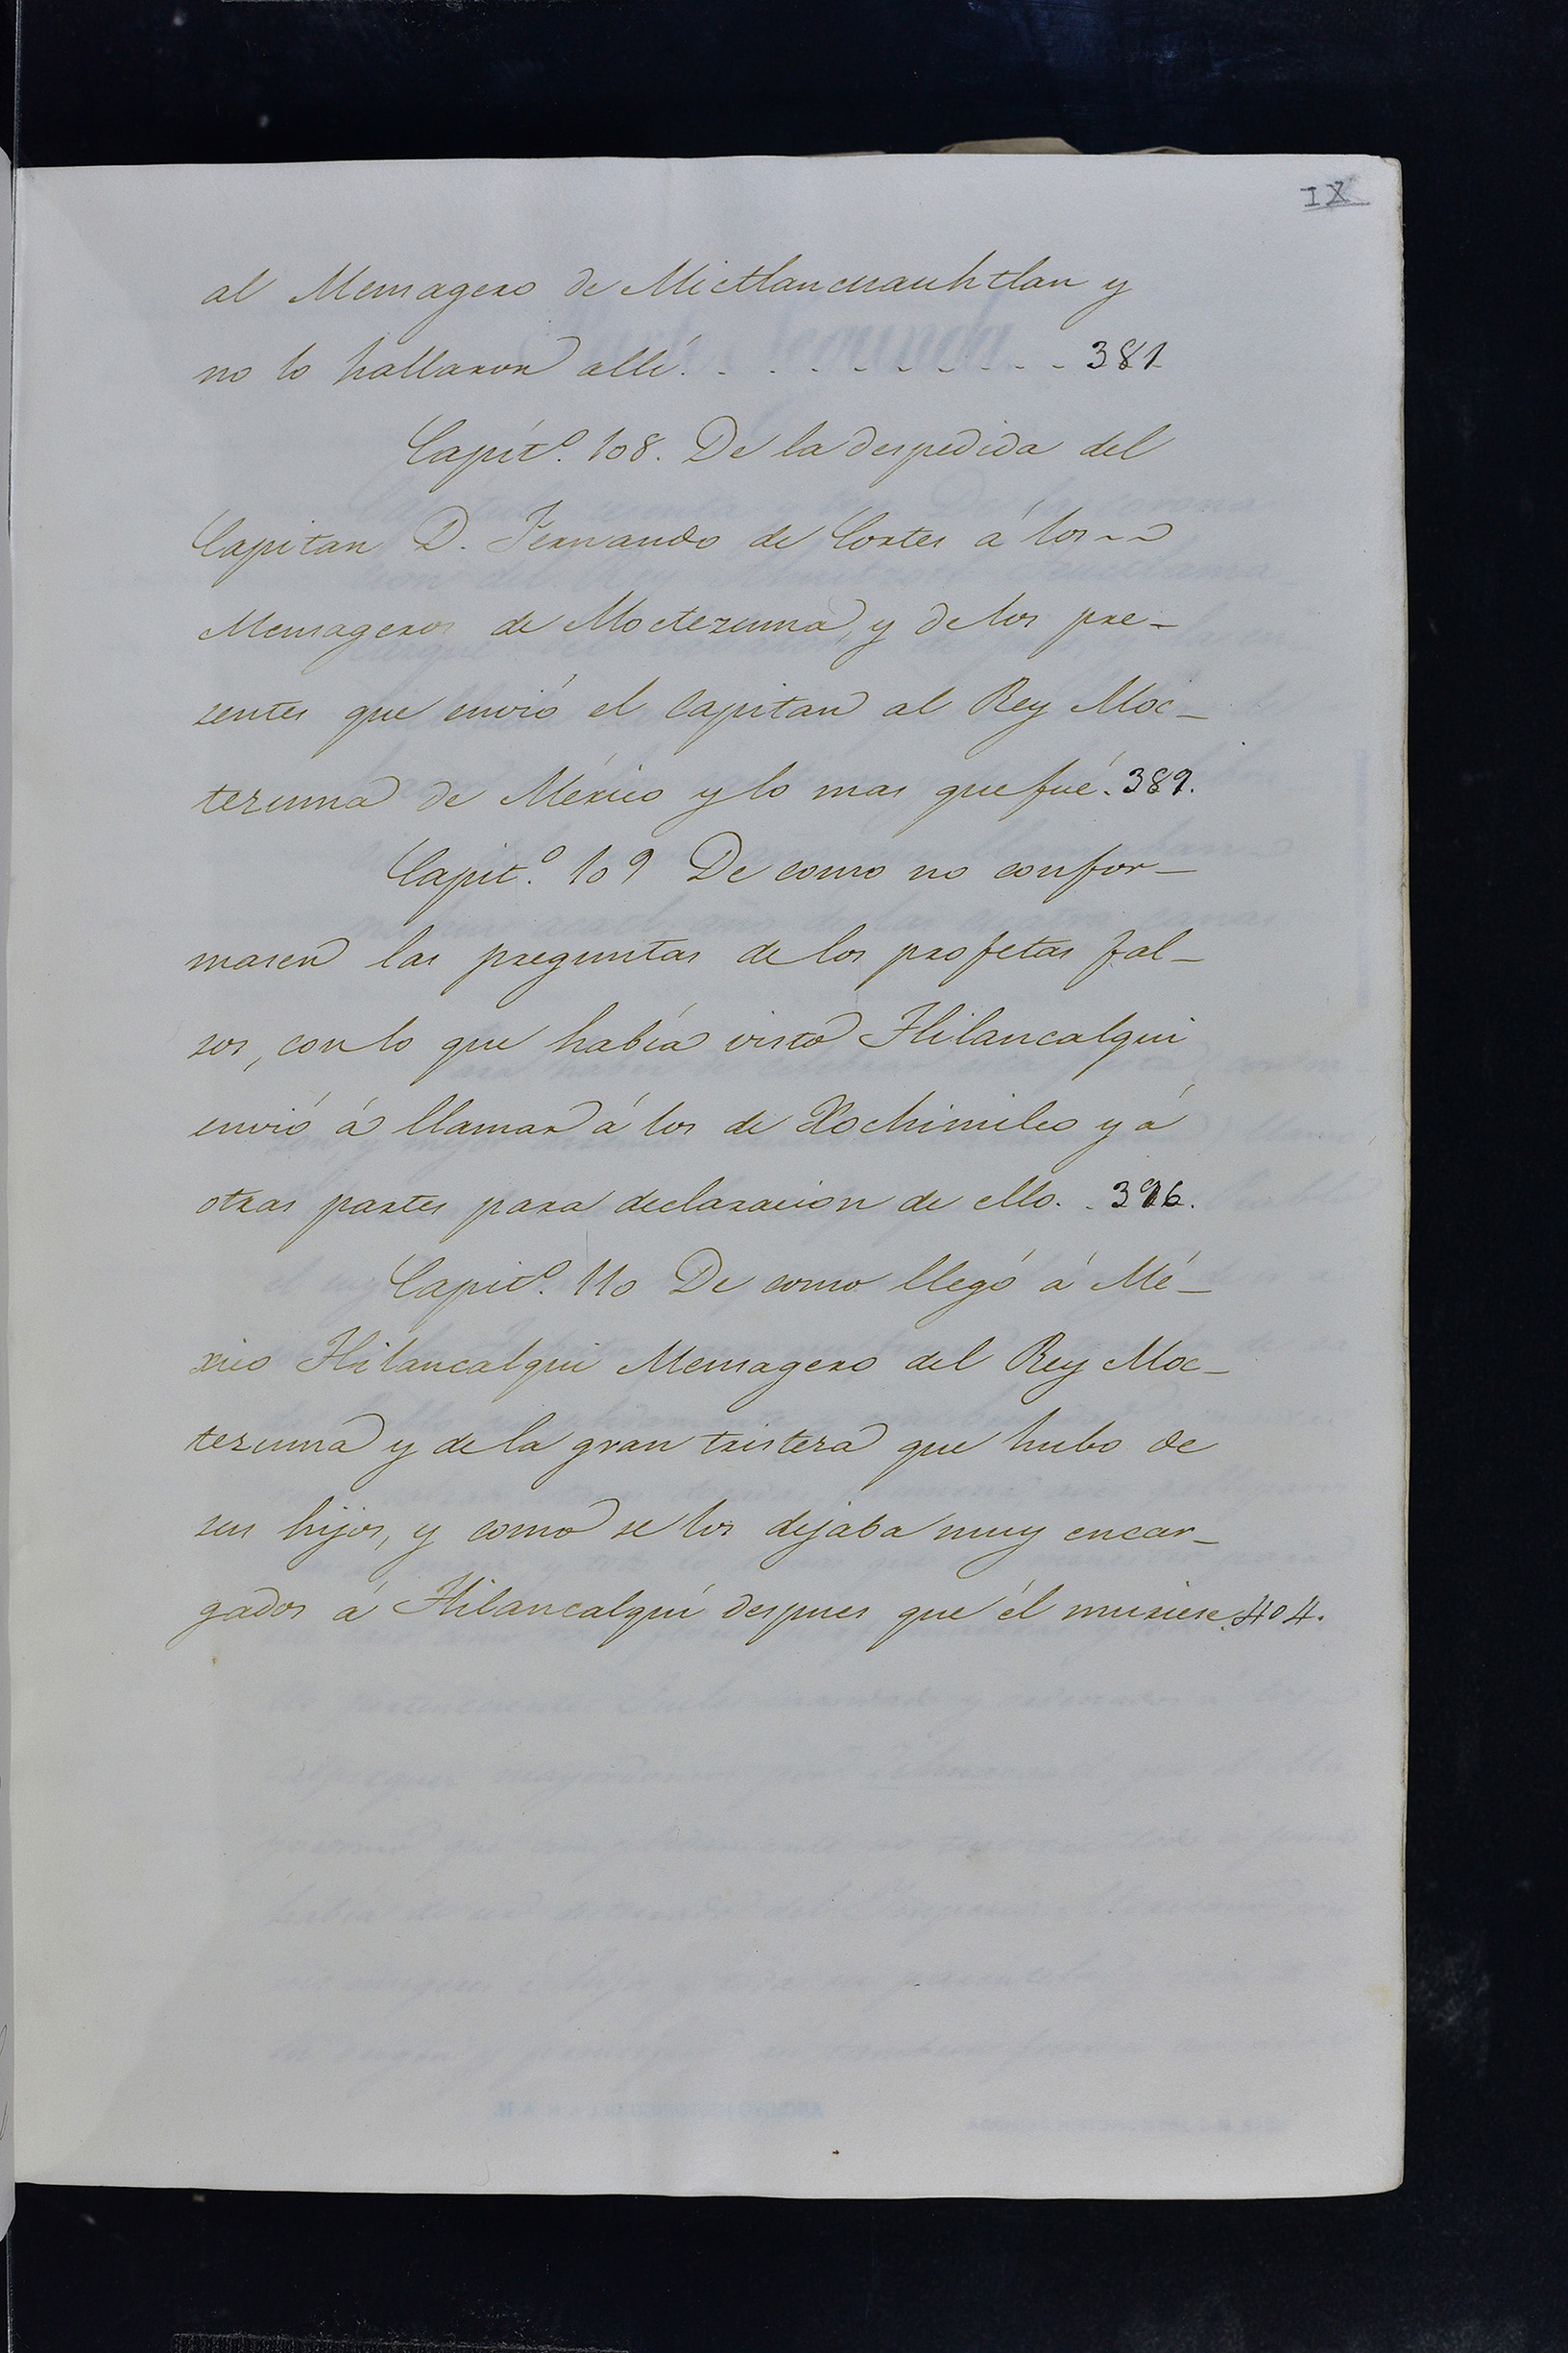 IX
al Mensagero de Mictlancuauhtlan y
no lo hallaron allí. - - - - - - - - - 381
Capit.º 108. De la despedida del
Capitan D. Fernando de Cortes á los - -
Mensageros de Moctezuma, y de los pre-
sentes que envió el Capitan al Rey Moc-
tezuma de México y lo mas que fué. 389.
Capit.º 109 De como no confor-
masen las preguntas de los profetas fal-
sos, con lo que había visto Tlilancalqui
envió á llamar á los de Xochimilco y á
otras partes para declaracion de ello. . 396.
Capit.º 110 De como llegó á Mé-
xico Tlilancalqui Mensagero del Rey Moc-
tezuma y de la gran tristeza que hubo de
sus hijos, y como se los dejaba muy encar-
gados á Tlilancalqui despues que él muriese. 404.